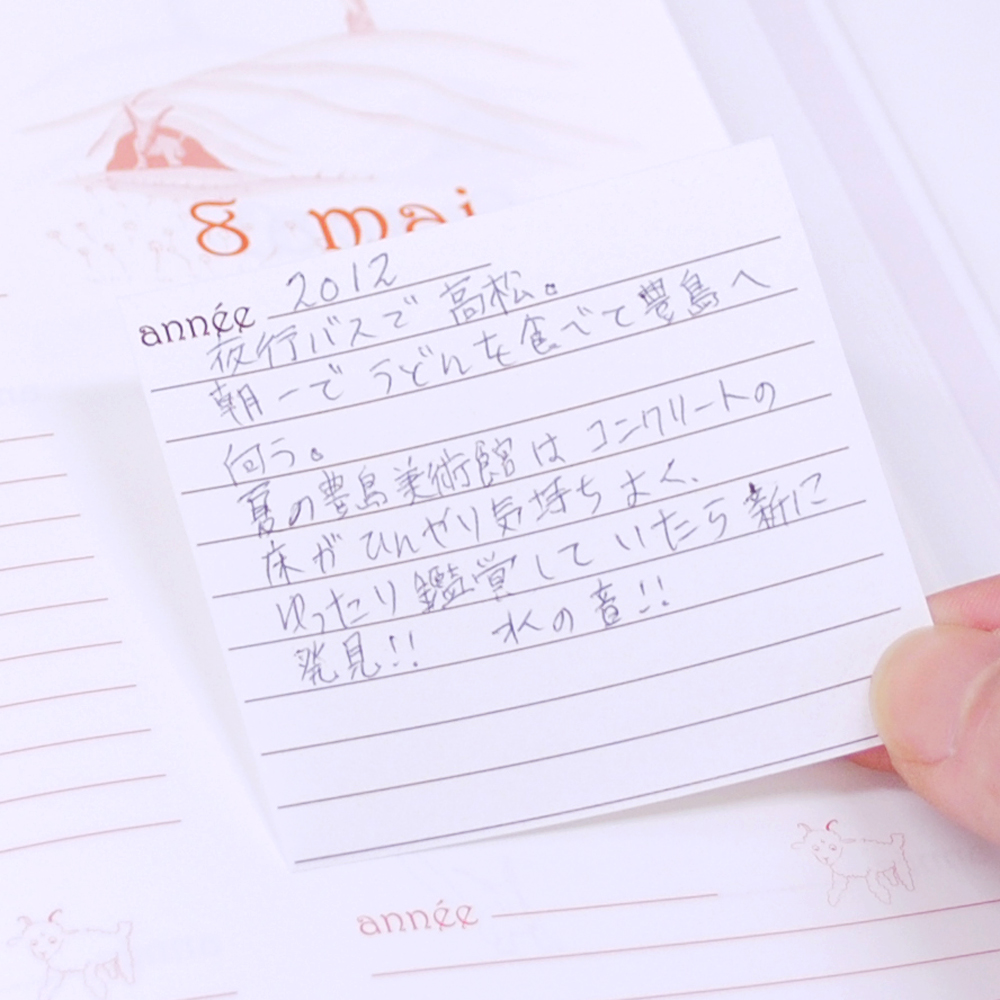 8 mai
année 2012
夜行バスで高松。
朝一でうどんを食べて豊島へ
向う。
夏の豊島美術館はコンクリートの
床がひんやり気持ちよく、
ゆったり鑑賞していたら新に
発見!! 水の音!!
année